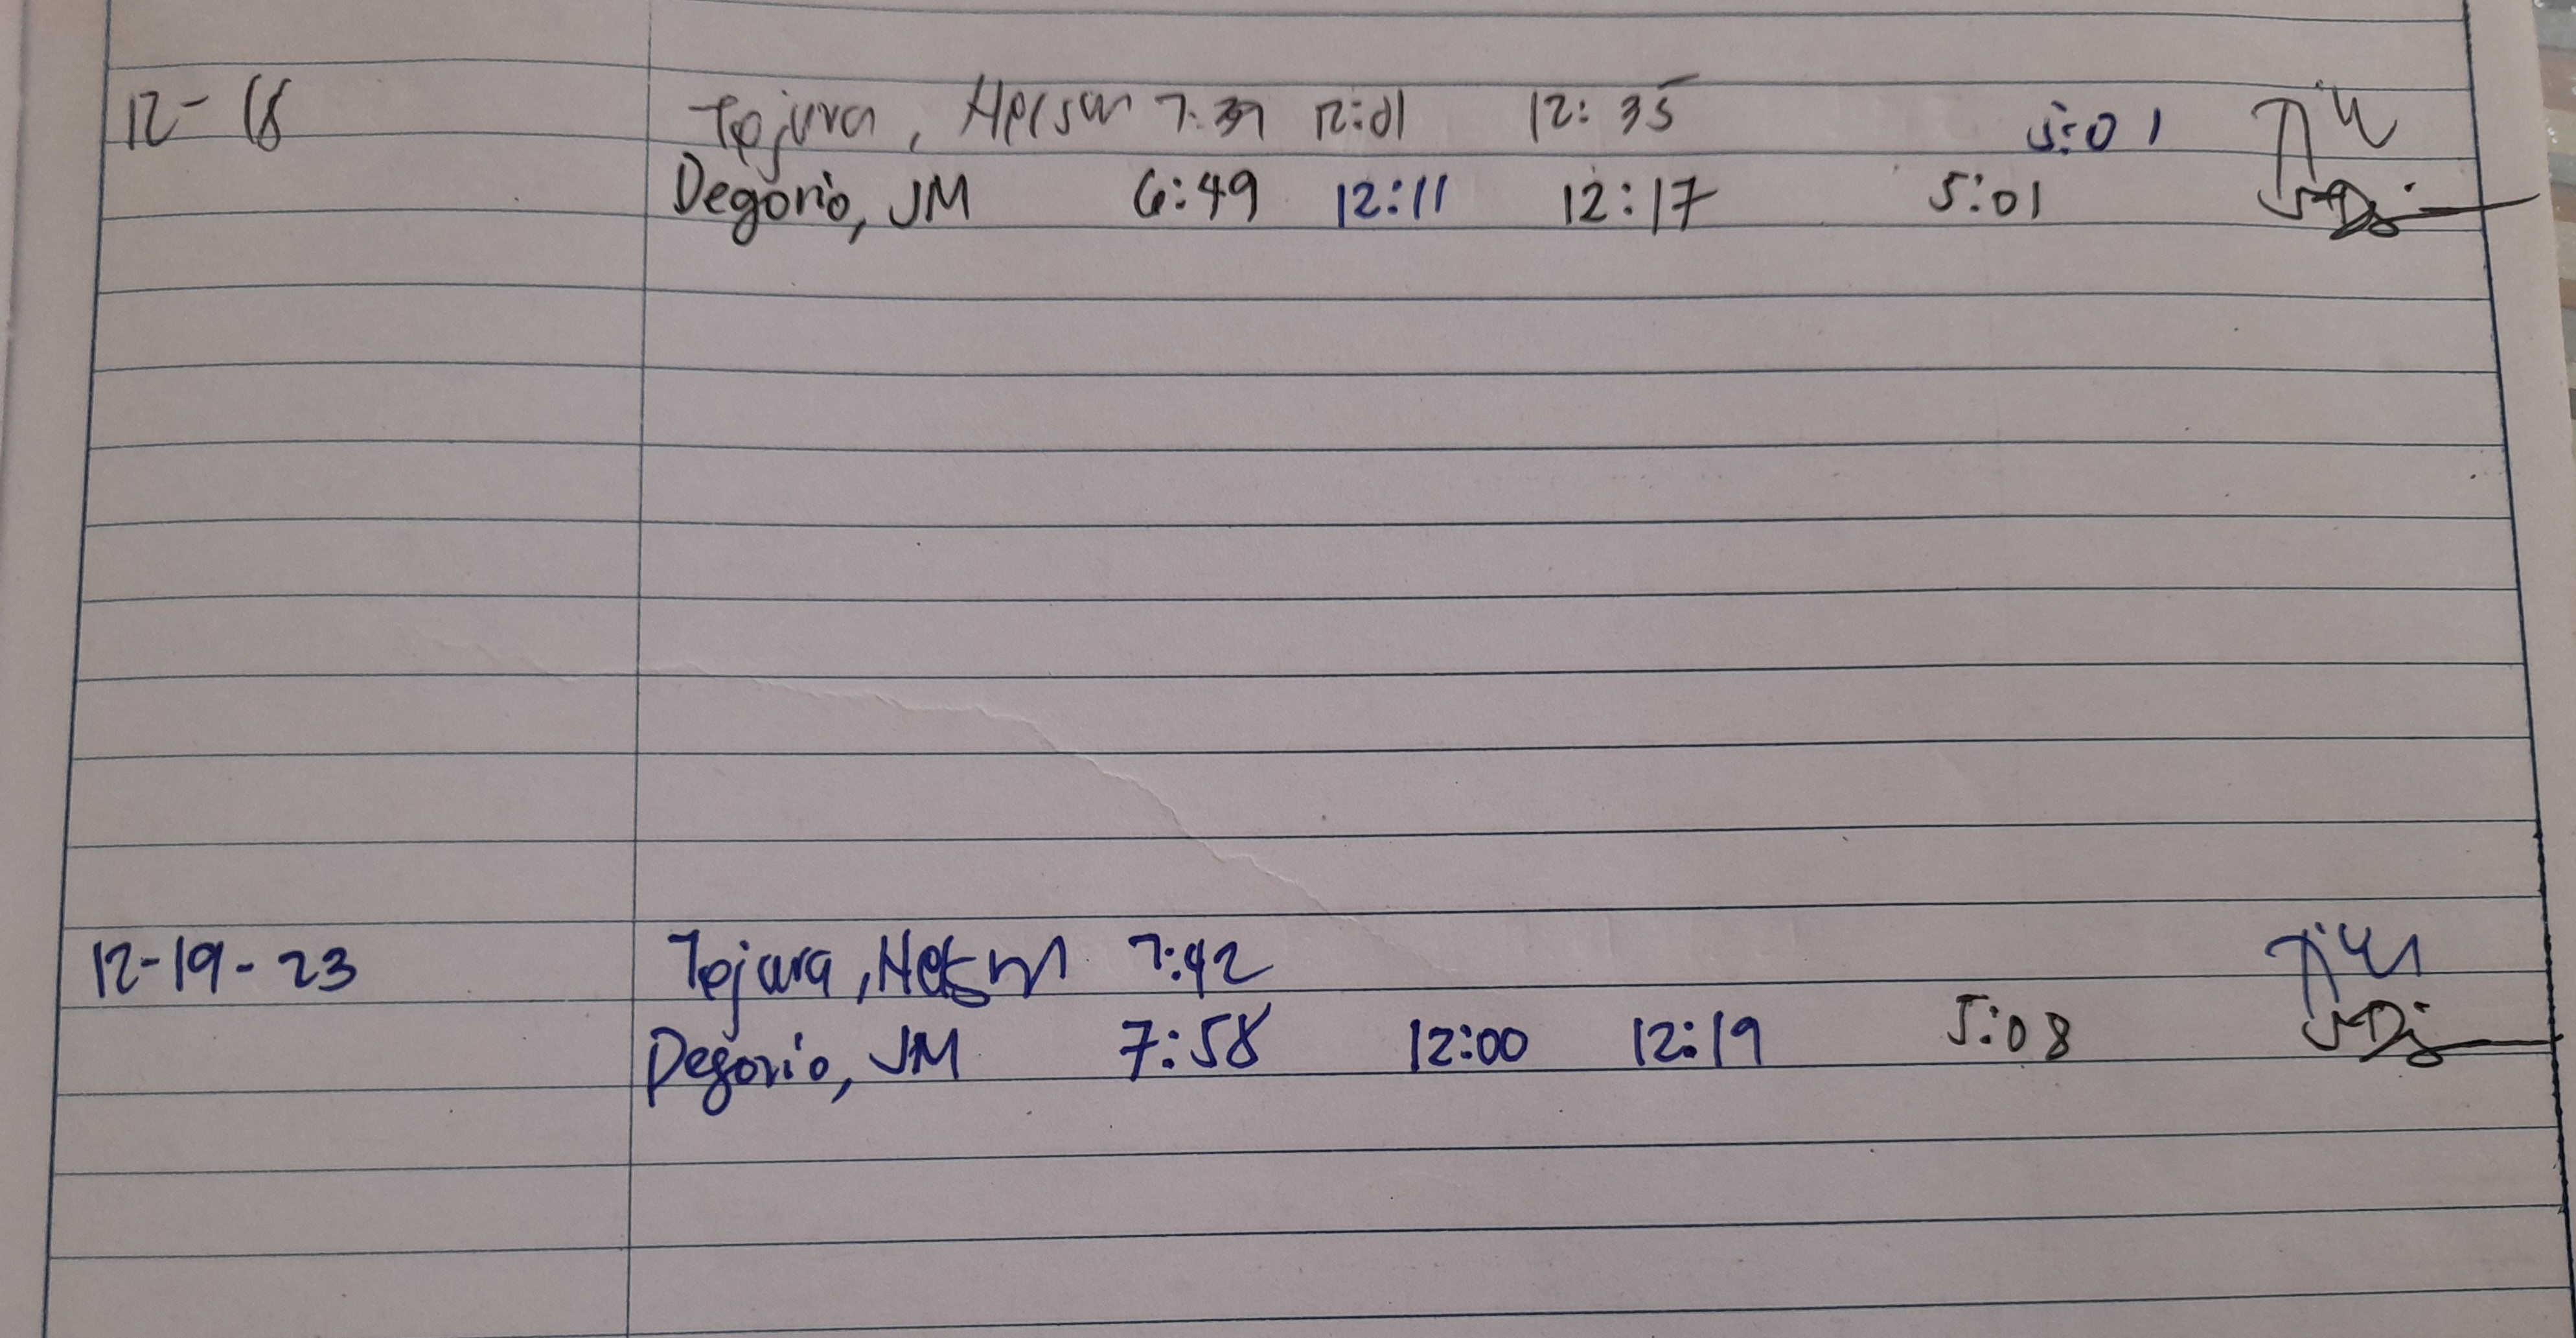 12-18 Tejura, Herson 7:39 12:01 12:35 5:01
Degorio, JM 6:49 12:11 12:17 5:01
12-19-23 Tejura, Herson 7:42
Degorio, JM 7:58 12:00 12:19 5:08